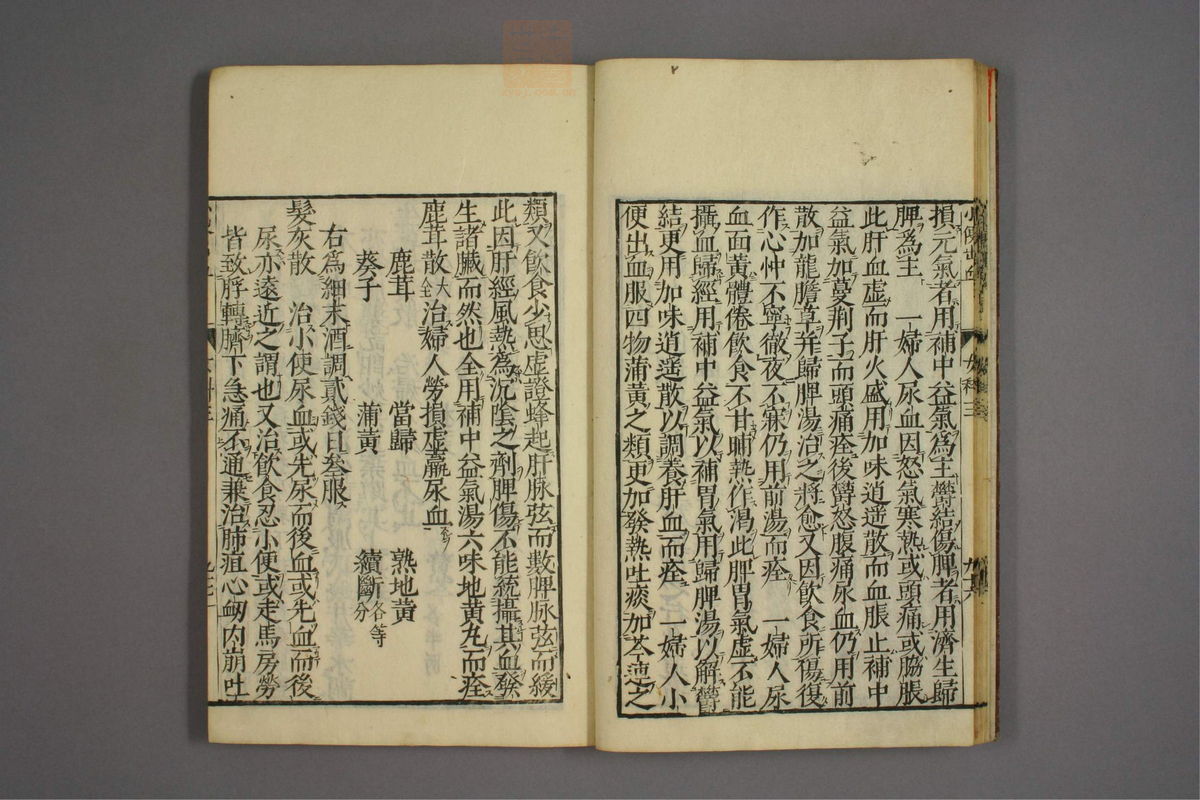 損元氣者用補中益氣爲主欝結傷脾者用濟生歸
脾爲主　一婦人尿血因怒氣寒熱或頭痛或脇脹
此肝血虚而肝火盛用加味逍遥散而血脹止補中
益氣加蔓荆子而頭痛痊後欝怒腹痛尿血仍用前
散加龍膽草并歸脾湯治之將愈又因飲食所傷復
作心忡不寧徹夜不寐仍用前湯而痊　一婦人尿
血面黄體倦飲食不甘晡熱作渴此脾胃氣虚不能
攝血歸經用補中益氣以補胃氣用歸脾湯以解欝
結更用加味逍遥散以調養肝血而痊　一婦人小
便出血服四物蒲黄之類更加發熱吐痰加芩連之
類又飲食少思虚證蜂起肝脉弦而數脾脉弦而緩
此因肝經風熱爲沉陰之劑脾傷不能統攝其血發
生諸臓而然也全用補中益氣湯六味地黄丸而痊
鹿茸散大全治婦人勞損虚羸尿血
鹿茸　當歸　熟地黄
葵子　蒲黄　續斷各等分
右爲細末酒調貳錢日叄服
髮灰散　治小便尿血或先尿而後血或先血而後
尿亦遠近之謂也又治飲食忍小便或走馬房勞
皆致脬轉臍下急痛不通兼治肺疽心衂内崩吐